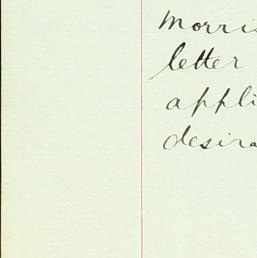 Morris
letter
appli
desira